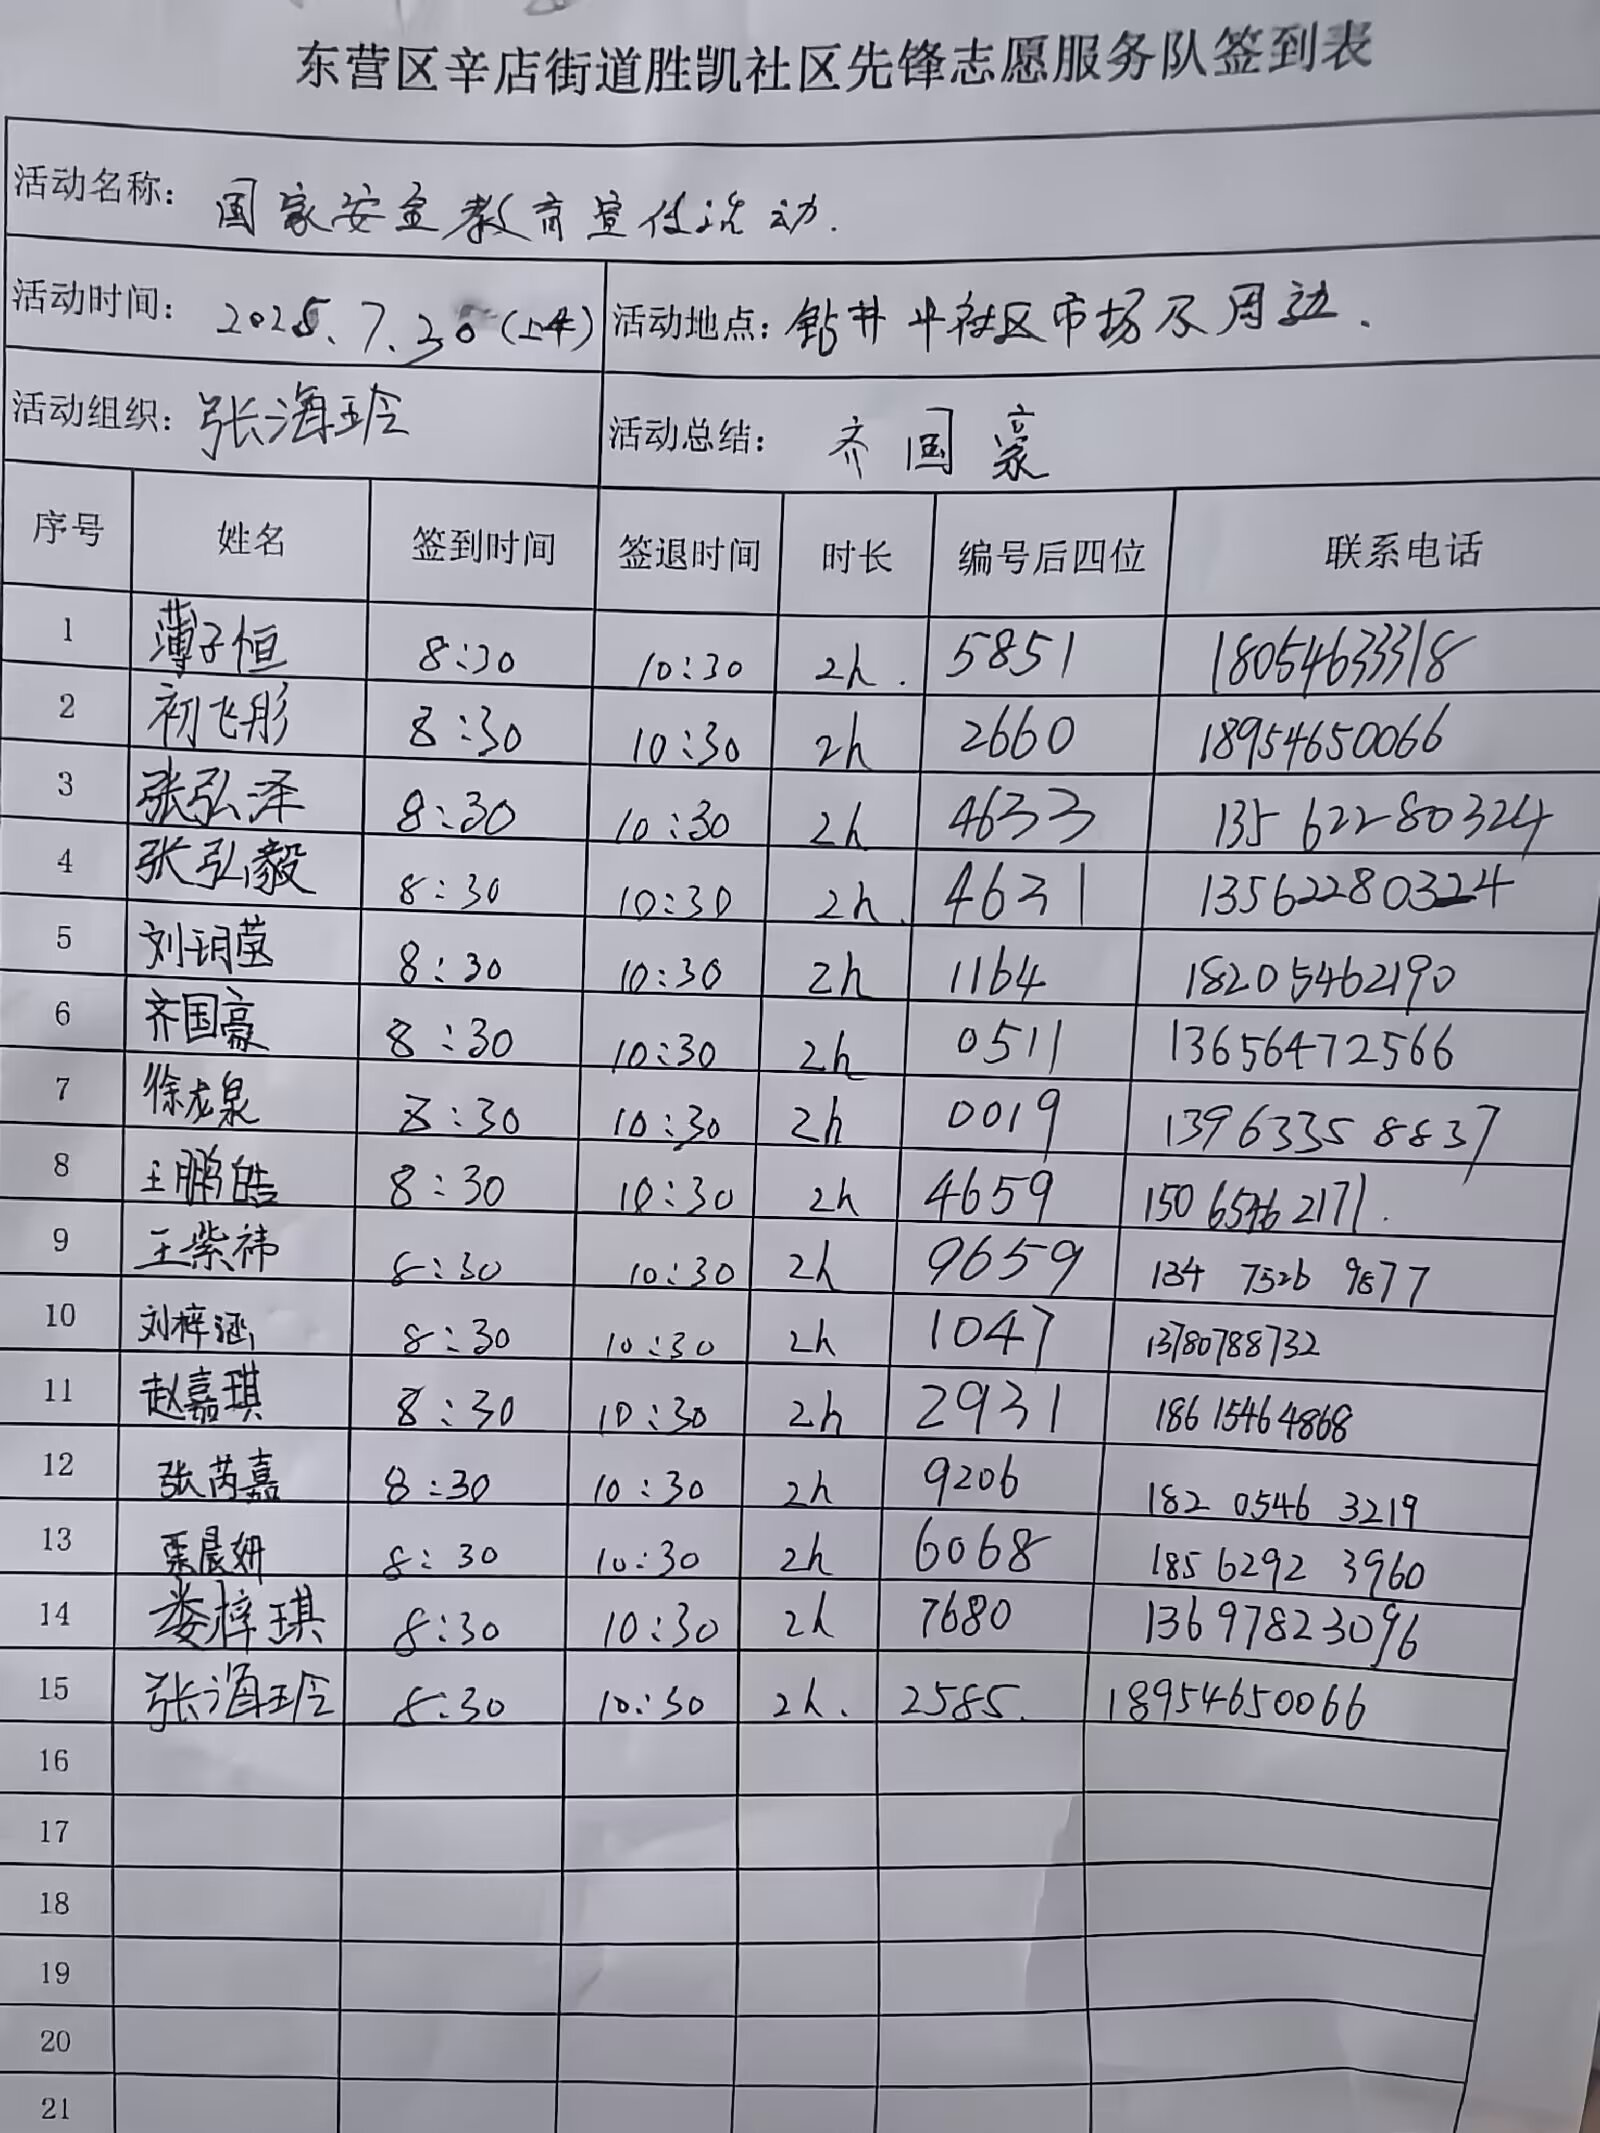 东营区辛店街道胜凯社区先锋志愿服务队签到表
活动名称： 国家安全教育宣传活动.
活动时间： 2025.7.30(上午) 活动地点： 钻井社区市场及周边.
活动组织： 张海玲 活动总结： 齐国豪
序号 姓名 签到时间 签退时间 时长 编号后四位 联系电话
1 薄子恒 8:30 10:30 2h. 5851 18054633318
2 初飞彤 8:30 10:30 2h 2660 18954650066
3 张弘泽 8:30 10:30 2h 4633 135 622 80324
4 张弘毅 8:30 10:30 2h. 4631 13562280324
5 刘玥莹 8:30 10:30 2h 1164 18205462190
6 齐国豪 8:30 10:30 2h 0511 13656472566
7 徐龙泉 8:30 10:30 2h 0019 13963358837
8 王鹏皓 8:30 10:30 2h 4659 150 6546 2171.
9 王紫祎 8:30 10:30 2h 9659 134 7526 9877
10 刘梓涵 8:30 10:30 2h 1047 13780788732
11 赵嘉琪 8:30 10:30 2h 2931 186 1546 4868
12 张芮嘉 8:30 10:30 2h 9206 182 0546 3219
13 栗晨妍 8:30 10:30 2h 6068 185 6292 3960
14 娄梓琪 8:30 10:30 2h 7680 13697823096
15 张海玲 8:30 10:30 2h. 2585. 18954650066
16
17
18
19
20
21